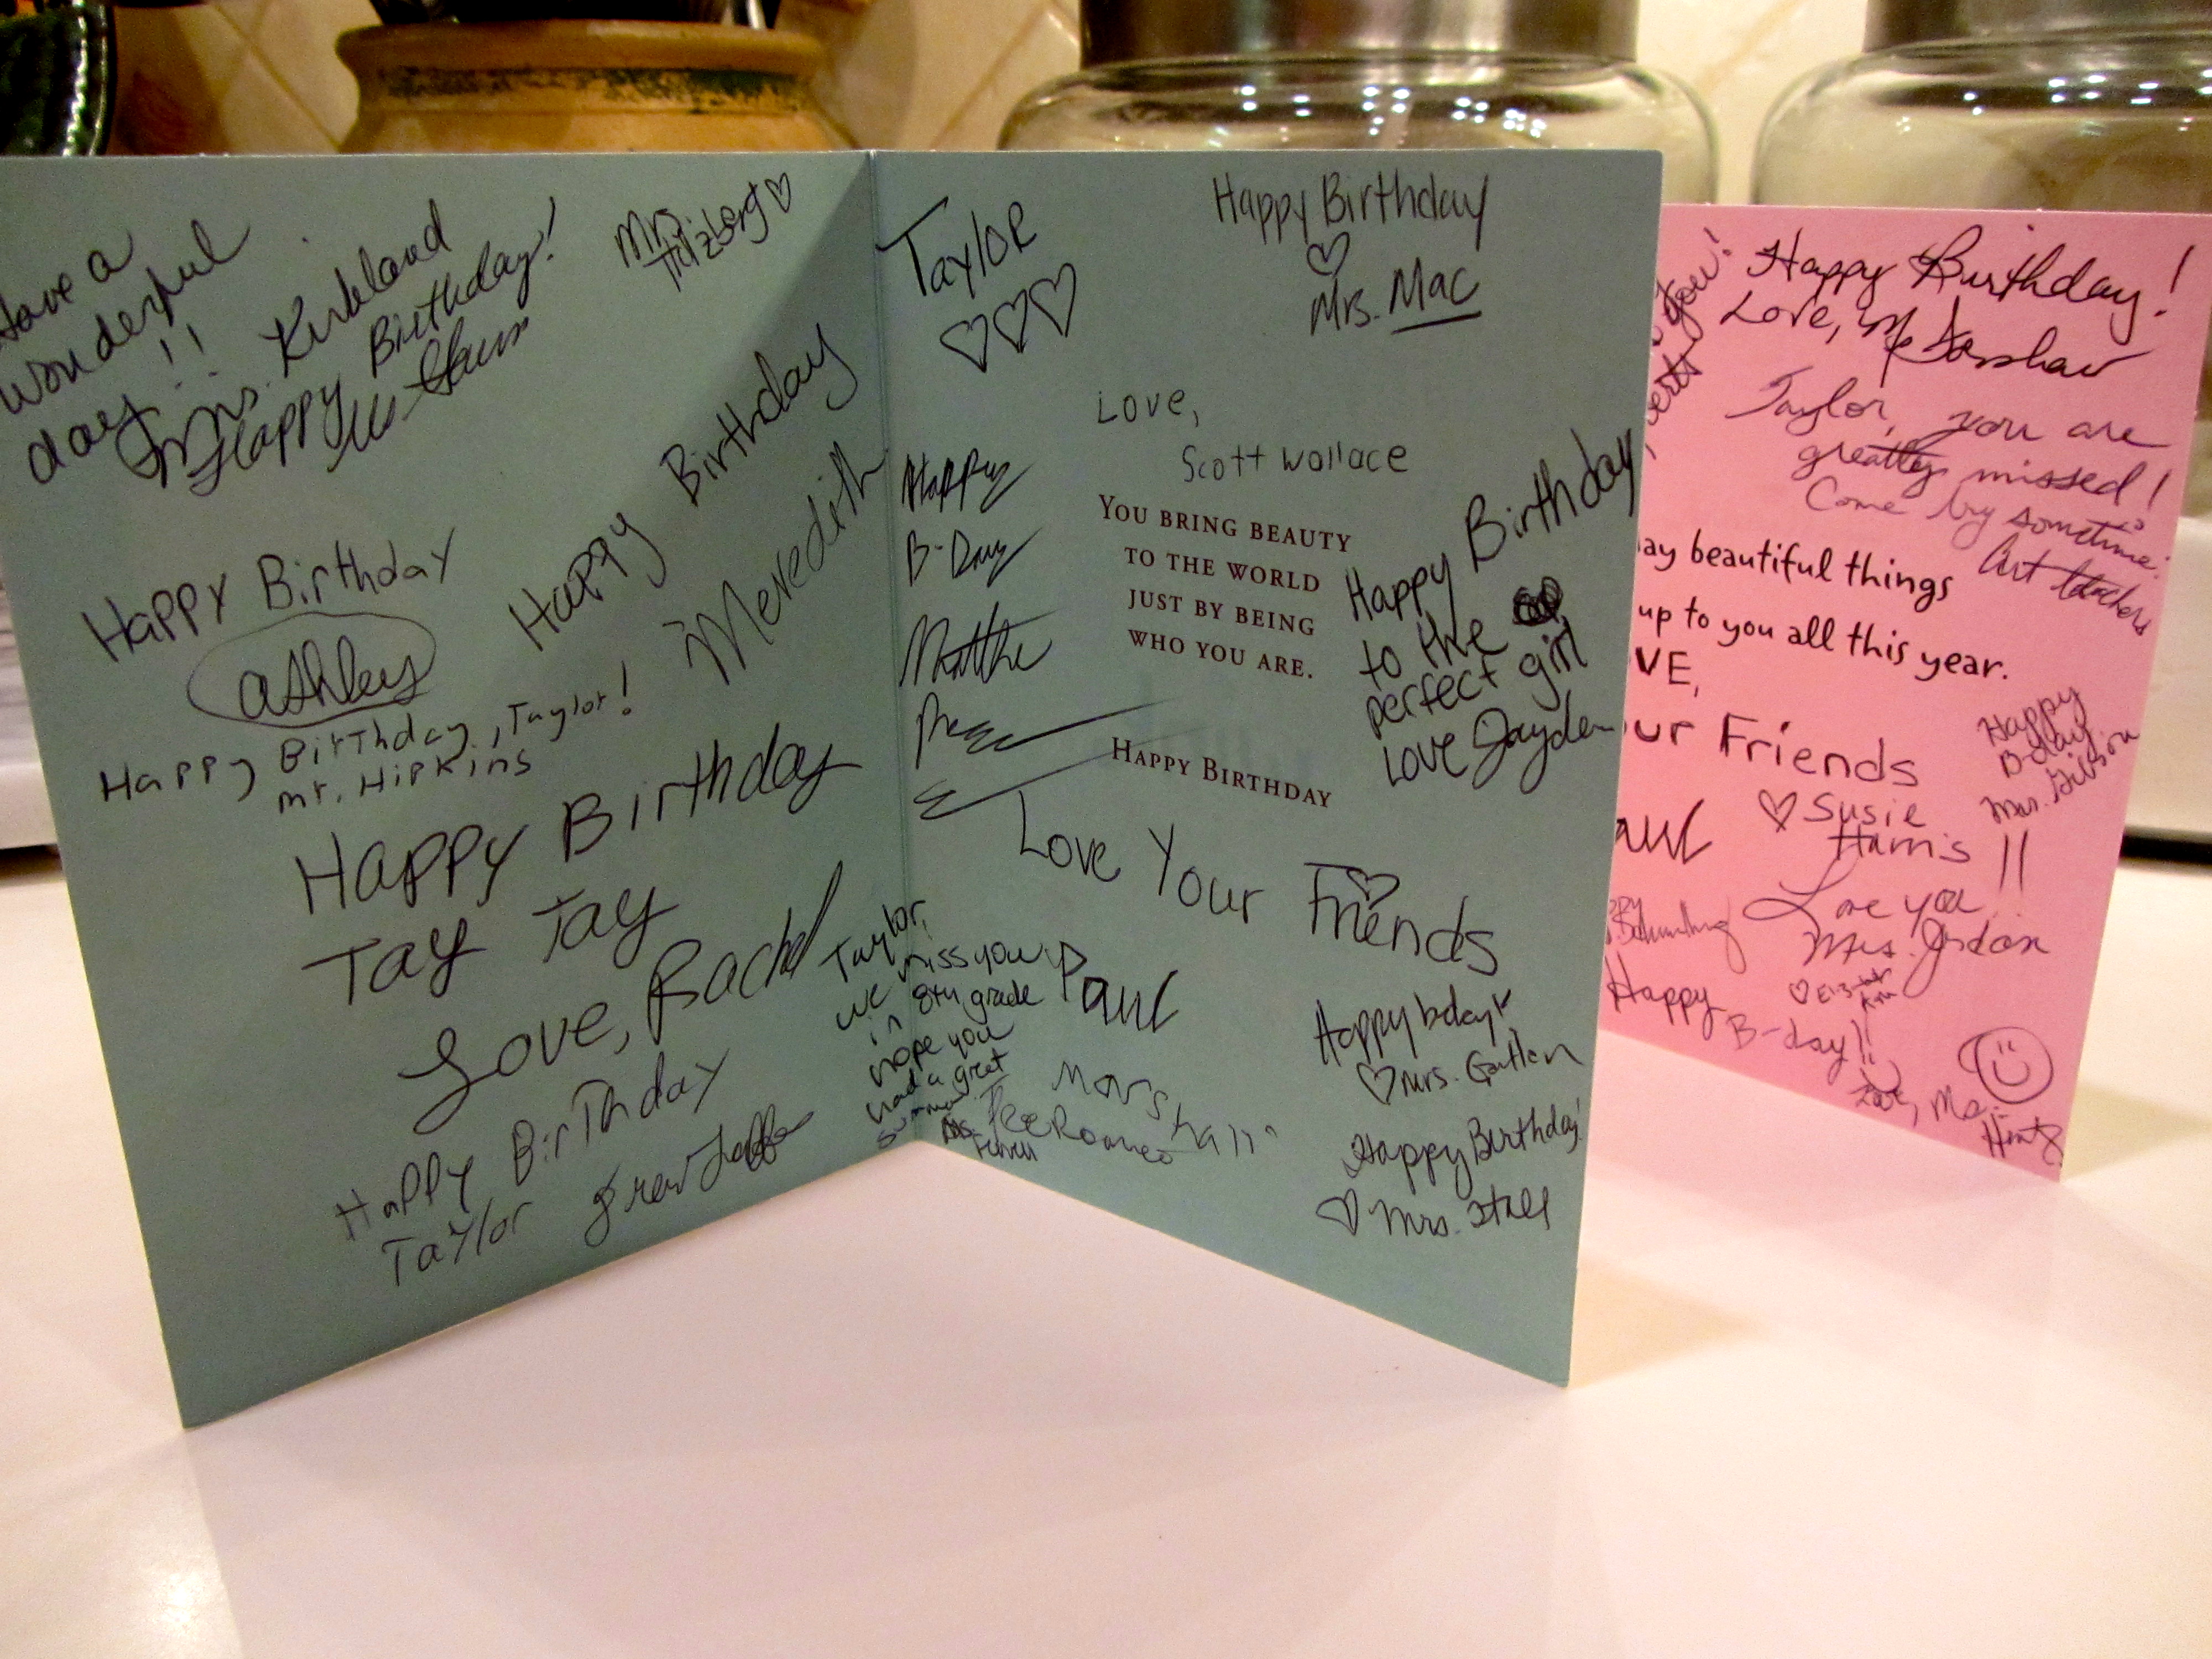 Have a
wonderful
day!!
Mrs. Kirkland
Happy Birthday!
Mrs.
Happy Birthday
Ashley
Happy Birthday
Meredith
Happy Birthday, Taylor!
Mr. Hipkins
Happy Birthday
Tay Tay
Love, Rachel
Happy Birthday
Taylor
Taylor
Happy Birthday
Mrs. Mac
Love,
Scott Wallace
Happy
B-Day
YOU BRING BEAUTY
TO THE WORLD
JUST BY BEING
WHO YOU ARE.
HAPPY BIRTHDAY
Happy Birthday
to the
perfect girl
Love Jayden
Love Your Friends
Taylor,
we miss you
in 8th grade
hope you
had a great
summer.
Ms.
Paul
Marshall
Happy bday!
Mrs.
Happy Birthday!
Mrs. Stall
you!
Happy Birthday!
Love,
Taylor, you are
greatly missed!
Come by sometime.
Art teachers
ay beautiful things
up to you all this year.
VE,
ur Friends
Happy
B-day
Mrs. Gibson
aul
Susie
Harris
Love you!!
Mrs. Jordan
Happy
B-day!!
Love, Ms.